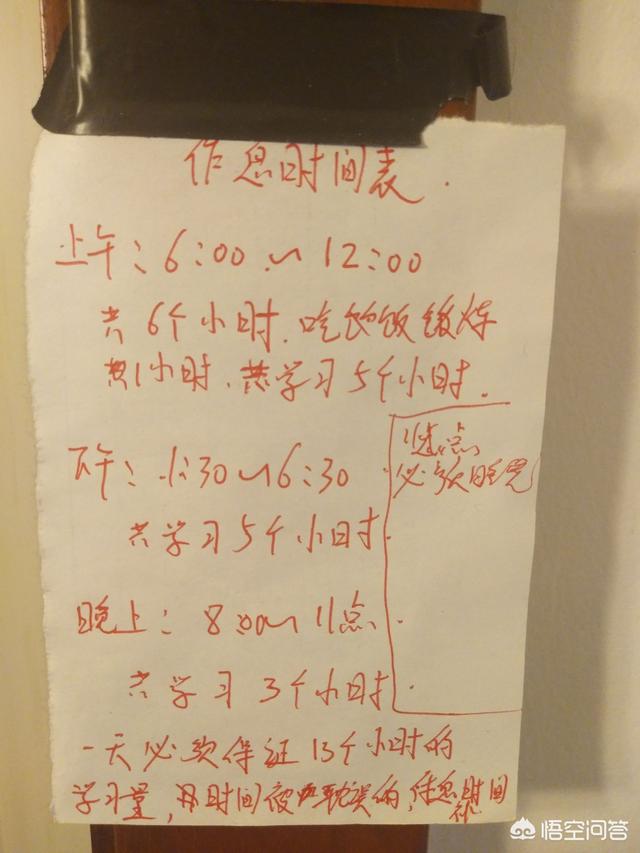 作息时间表.
上午：6:00~12:00
共6个小时.吃饭锻炼
共1小时.共学习5个小时.
下午：1:30~6:30
共学习5个小时.
11点
必须睡觉
晚上：8:00~11点.
共学习3个小时.
一天必须保证13个小时的
学习量,时间被耽误的,休息时间
悟空问答